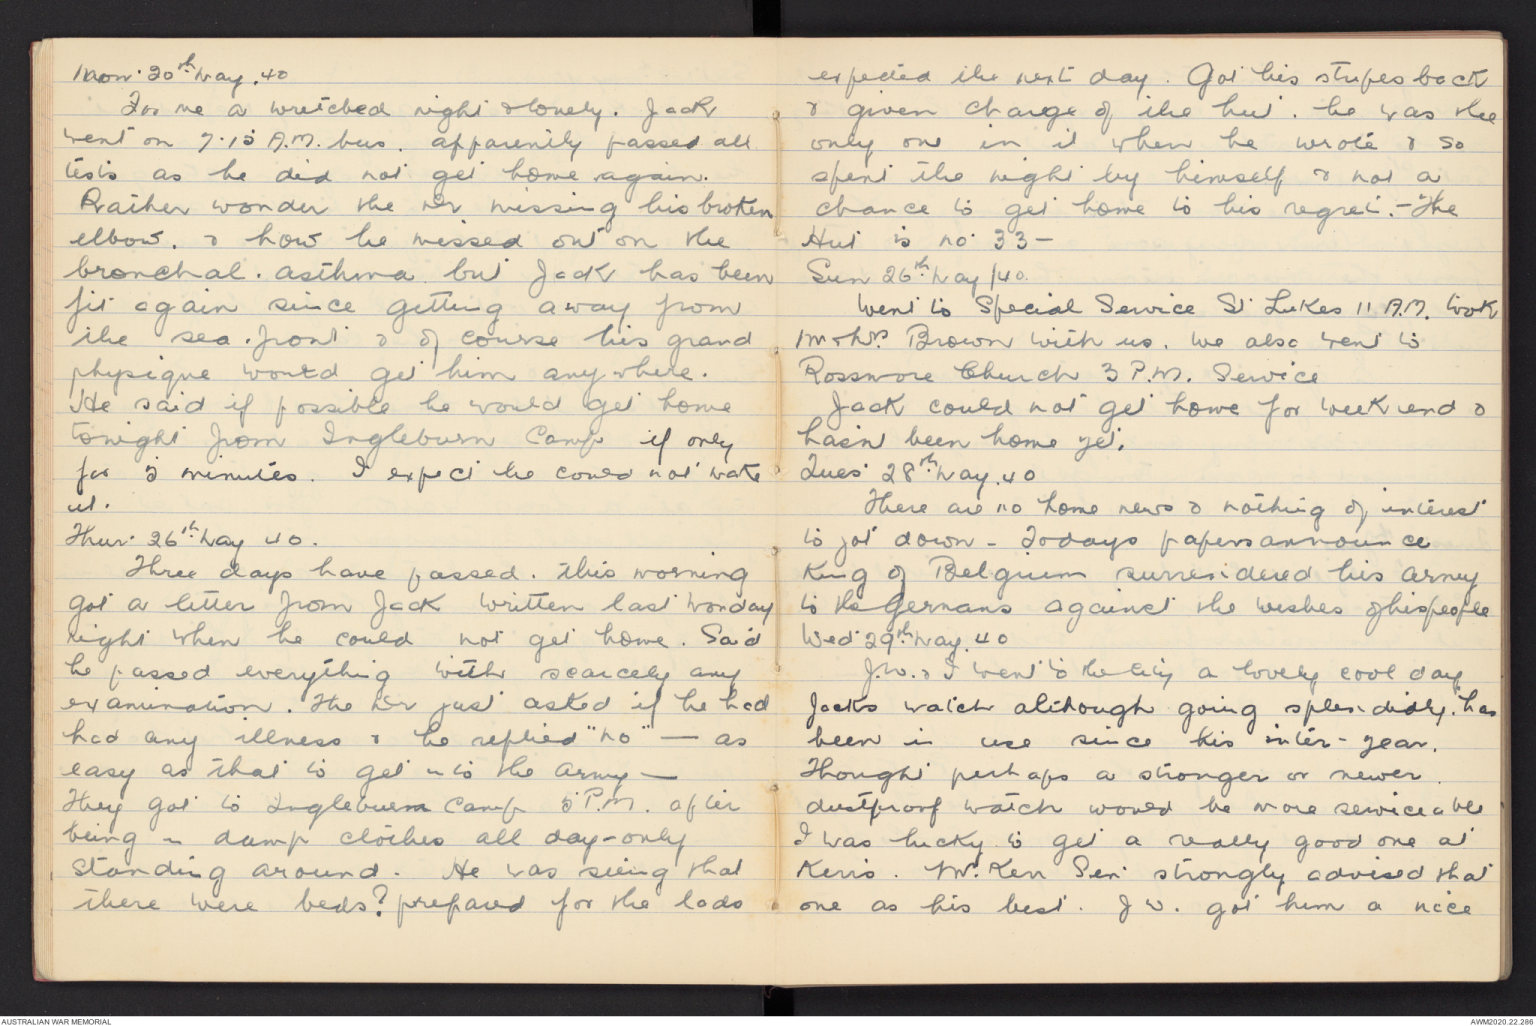 Mon: 20th May. 40
For me a wretched night & lonely. Jack
went on 7.15 A.M. bus. apparently passed all
tests as he did not get home again.
Rather wonder the Dr missing his broken
elbow. & how he missed out on the
bronchal. asthma but Jack has been
fit again since getting away from
the sea.front & of course his grand
physique would get him anywhere.
He said if possible he would get home
tonight from Ingleburn Camp if only
for 5 minutes. I expect he could not make
it.
Thur: 26th May 40.
Three days have passed. this morning
got a letter from Jack written last Monday
night when he could not get home. Said
he passed everything with scarcely any
examination. The Dr just asked if he had
had any illness & he replied "no" — as
easy as that to get into the Army —
They got to Ingleburn Camp 5 P.M. after
being in damp clothes all day - only
standing around. He was seeing that
there were beds? prepared for the lads
expected the next day. Got his stripes back
& given charge of the hut. he was the
only one in it when he wrote & so
spent the night by himself & not a
chance to get home to his regret. - The
Hut is no. 33 —
Sun 26th May/40.
Went to Special Service St Lukes 11 A.M. took
Mr & Mrs. Brown with us. We also went to
Rossmore Church 3 P.M. Service
Jack could not get home for week end &
hasn't been home yet.
Tues: 28th May. 40
There are no home news & nothing of interest
to jot down - Todays papers announce
King of Belgium surrendered his army
to the Germans against the wishes of his people
Wed: 29th May. 40
J.W. & I went to the City a lovely cool day
Jacks watch although going splendidly. has
been in use since his inter - year.
Thought perhaps a stronger or newer.
dustproof watch would be more serviceable
I was lucky to get a really good one at
Kerrs. Mr. Kerr Sen: strongly advised that
one as his best. J W. got him a nice
AUSTRALIAN WAR MEMORIAL
AWM2020.22.286